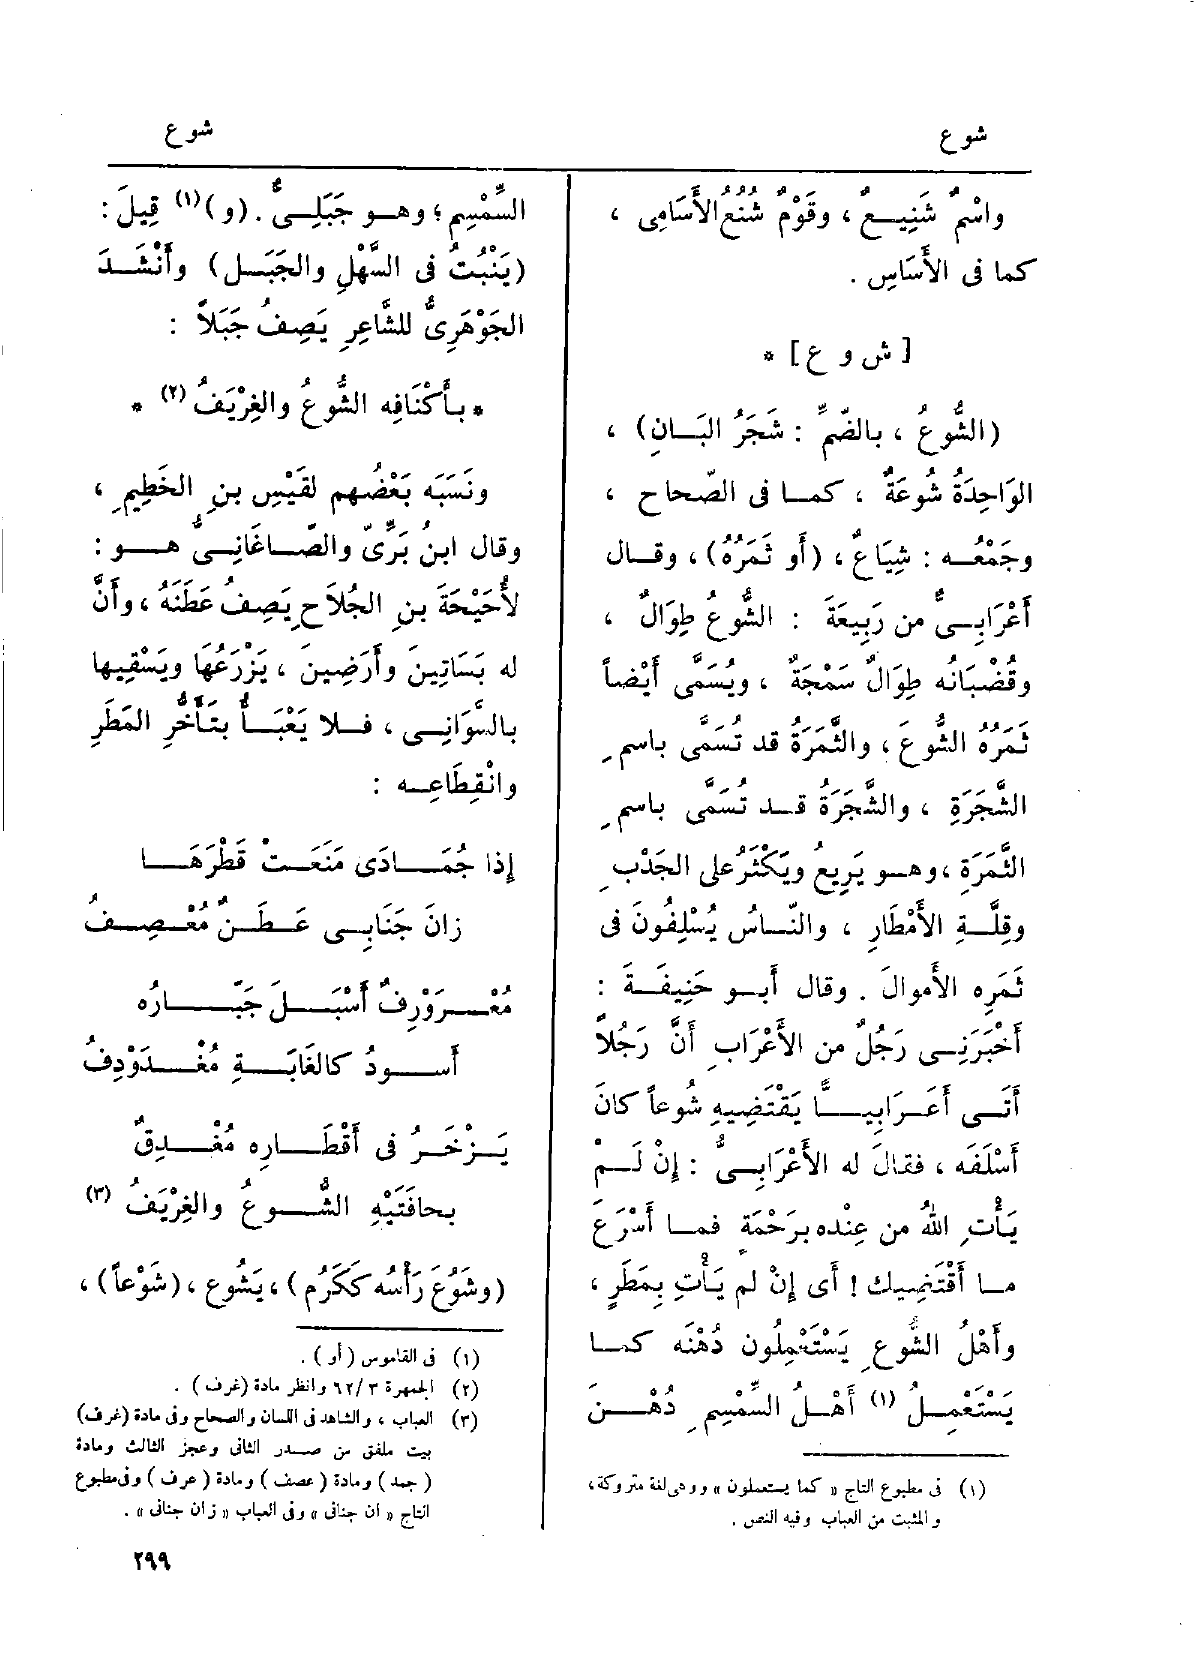 شوع
شوع
واسْمٌ شَنِيعٌ ، وقَوْمٌ شُنُعُ الأَسَامِى ،
كما فى الأَسَاسِ .
[ ش و ع ] *
(الشُّوعُ ، بالضَّمِّ : شَجَرُ البَـانِ) ،
الوَاحِدَةُ شُوعَةٌ ، كمـا فى الصّحاح ،
وجَمْعُـه : شِيَاعٌ ، (أَو ثَمَرُهُ) ، وقـال
أَعْرَابِـىٌّ من رَبِيعَةَ : الشُّوعُ طِوَالٌ ،
وقُضْبَانُه طِوَالٌ سَمْجَةٌ ، ويُسَمَّى أَيْضاً
ثَمَرُهُ الشُّوعَ ، والثَّمَرَةُ قد تُسَمَّى باسمِ
الشَّجَرَةِ ، والشَّجَرَةُ قـد تُسَمَّى باسمِ
الثَّمَرَةِ ، وهـو يَرِيعُ ويَكْثُرُ على الجَدْبِ
وقِلَّـةِ الأَمْطَارِ ، والنَّـاسُ يُسْلِفُونَ فى
ثَمَرِه الأَموالَ . وقال أَبـو حَنِيفَـةَ :
أَخْبَرَنِـى رَجُلٌ من الأَعْرَابِ أَنَّ رَجُلاً
أَتَـى أَعْـرَابِيـًّا يَقْتَضِيهِ شُوعاً كانَ
أَسْلَفَه ، فقالَ له الأَعْرَابِـىُّ : إِنْ لَـمْ
يَأْتِ اللهُ من عِنْدِه بِرَحْمَةٍ فمـا أَسْرَعَ
مـا أَقْتَضِيك ! أَى إِنْ لم يَأْتِ بِمَطَرٍ ،
وأَهْلُ الشُّوعِ يَسْتَعْمِلُون دُهْنَه كمـا
يَسْتَعْمِـلُ (١) أَهْـلُ السِّمْسِمِ دُهْـنَ
(١) فى مطبوع التاج « كما يستعملون » ووهى لغة متروكة ،
والمثبت من العباب وفيه النص .
السِّمْسِمِ ؛ وهـو جَبَلِـىٌّ . (و) (١) قِيلَ :
(يَنْبُتُ فى السَّهْلِ والجَبَـلِ) وأَنْشَـدَ
الجَوْهَرِىُّ للشَّاعِرِ يَصِفُ جَبَلاً :
* بأَكْنَافِه الشُّوعُ والغِرْيَفُ (٢) *
ونَسَبَه بَعْضُهم لقَيْسِ بنِ الخَطِيمِ ،
وقال ابنُ بَرِّىّ والصّـاغَانِـىُّ هـو :
لأُحَيْحَةَ بنِ الجُلاَحِ يَصِفُ عَطَنَهُ ، وأَنَّ
له بَسَاتِينَ وأَرَضِينَ ، يَزْرَعُهَا ويَسْقِيها
بالسَّوَانِـى ، فـلا يَعْبَـأُ بتَأَخُّرِ المَطَرِ
وانْقِطَاعِـه :
إِذا جُمَـادَى مَنَعَـتْ قَطْرَهَـا
زانَ جَنَابِـى عَـطَـنٌ مُعْـصِـفُ
مُعْـرَوْرِفٌ أَسْبَـلَ جَبّـارُه
أَسـودُ كالغَابَـةِ مُغْـدَوْدِفُ
يَـزْخَـرُ فى أَقْطَـارِه مُغْـدِقٌ
بحافَتَيْهِ الشُّـوعُ والغِرْيَفُ (٣)
(وشَوُعَ رَأْسُه كَكَرُم) ، يَشُوع ، (شَوْعاً) ،
(١) فى القاموس (أو) .
(٢) الجمهرة ٣ /٦٢ وانظر مادة (غرف) .
(٣) العباب ، والشاهد فى اللسان والصحاح وفى مادة (غرف)
بيت ملفق من صـدر الثانى وعجز الثالث ومادة
(جمد) ومادة (عصف) ومادة (عرف) وفى مطبوع
التاج « ان جنانى » وفى العباب « زان جنانى » .
٢٩٩